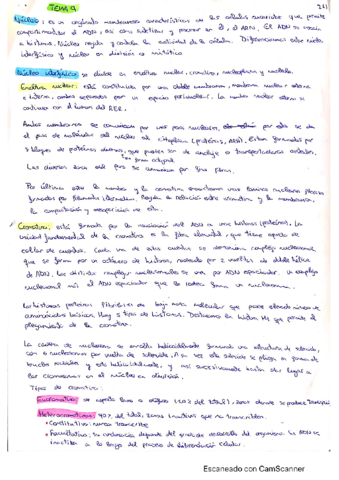 TEMA 9
Núcleo: es un orgánulo membranoso característico de las células eucariotas que permite
compartimentar el ADN, así como
e histonas. Núcleo regula y controla la actividad de la célula. Diferenciamos entre núcleo
interfásico y núcleo en división o mitótico
Núcleo interfásico: se divide en envoltura nuclear, cromatina, nucleoplasma y nucléolo.
Envoltura nuclear: está constituida por una doble membrana, membrana nuclear externa
e interna, ambas separadas por un espacio perinuclear. La membrana nuclear externa es
continua con el lumen del RER.
Ambas membranas se comunican por unos poros nucleares, por esto se da
el paso de moléculas del núcleo al citoplasma (proteínas, ARN). Están formados por
8 bloques de proteínas diversas, que pueden ser de anclaje o transportadoras
Por último entre la membrana y la cromatina encontramos una lámina nuclear fibrosa
formada por filamentos intermedios. Regula la relación entre cromatina y la membrana,
la compactación y
Cromatina: está formada por la asociación del ADN a unas histonas (proteínas). La
unidad fundamental de la cromatina es la fibra elemental, que tiene aspecto de
collar de cuentas. Cada una de estas cuentas se denomina complejo nucleosomal
que se forma por un octámero de histonas, rodeado por 2 vueltas de doble hélice
de ADN. Los distintos complejos nucleosomales se unen por ADN espaciador. Un complejo
nucleosomal más el ADN espaciador que lo rodea forma un nucleosoma.
Las histonas proteínas de bajo peso molecular que posee abundancia de
aminoácidos básicos. Hay 5 tipos de histonas. Destacamos la histona H1 que permite el
plegamiento de la cromatina.
La cadena de nucleosomas se enrolla helicoidalmente formando una estructura de solenoide,
con 6 nucleosomas por vuelta de solenoide. A su vez este solenoide se pliega en forma de
bucles radiales y este helicoidalmente, y así sucesivamente hasta dar lugar a
los cromosomas en el núcleo en división.
Tipos de cromatina:
Eucromatina: se aspecto laxo o difuso (10% del total), zonas donde se produce transcripción
Heterocromatina: 90% del total, zonas inactivas que no transcriben.
• Constitutiva: nunca transcribe
• Facultativa: su condensación depende del grado de desarrollo del organismo. El ADN se
inactiva a lo largo del proceso de diferenciación celular.
Escaneado con CamScanner